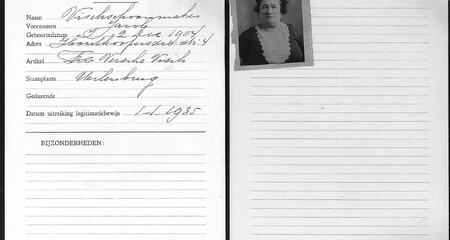 Naam: Vischschoonmaker
Voornamen Jacob
Geboortedatum 2 Dec 1904
Adres Houtkoopersdw. str. 4
Artikel Versche Visch
Staanplaats Uilenburg
Gedurende
Datum uitreiking legitimatiebewijs 1-1-1935
BIJZONDERHEDEN: